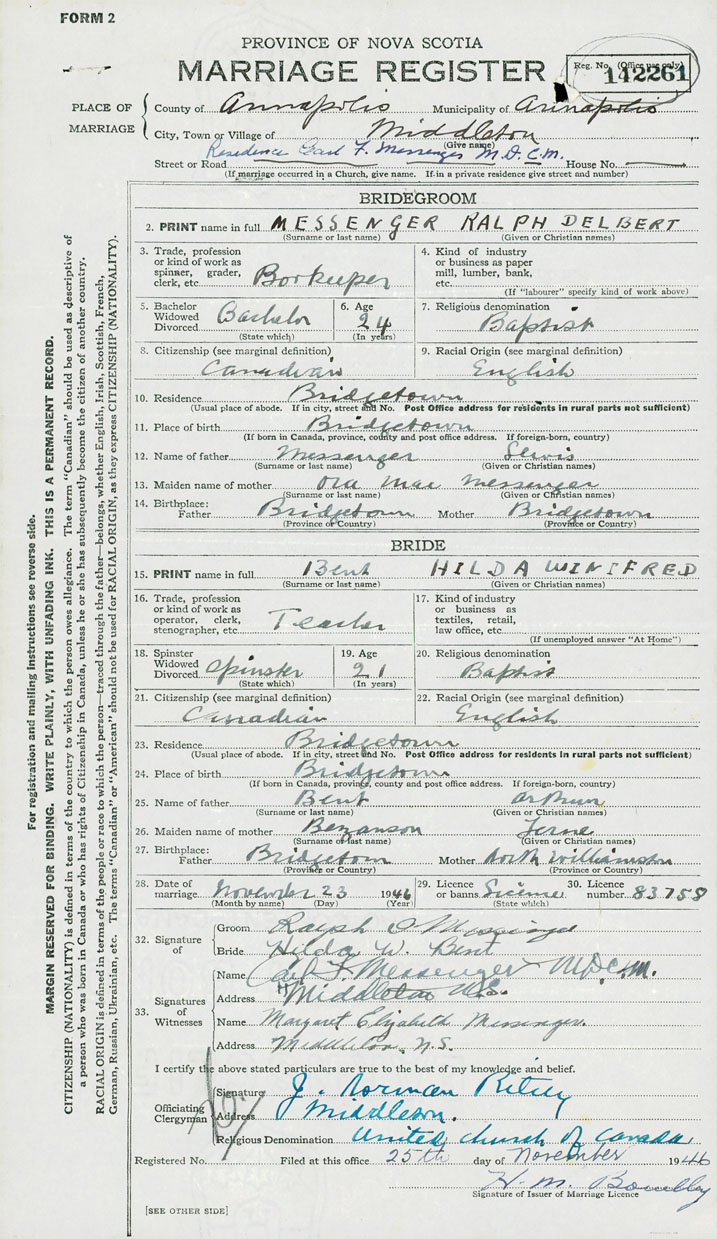 FORM 2
PROVINCE OF NOVA SCOTIA
MARRIAGE REGISTER
Reg. No. (Office use only)
142261
PLACE OF MARRIAGE
County of Annapolis Municipality of Annapolis
City, Town or Village of Middleton
(Give name)
Residence F. Messenger M.D.C.M.
Street or Road House No.
(If marriage occurred in a Church, give name. If in a private residence give street and number)
BRIDEGROOM
2. PRINT name in full MESSENGER RALPH DELBERT
(Surname or last name) (Given or Christian names)
3. Trade, profession or kind of work as spinner, grader, clerk, etc. Borkeeper
4. Kind of industry or business as paper mill, lumber, bank, etc.
(If "labourer" specify kind of work above)
5. Bachelor Widowed Divorced Bachelor
(State which)
6. Age 24
(In years)
7. Religious denomination Baptist
8. Citizenship (see marginal definition) Canadian
9. Racial Origin (see marginal definition) English
10. Residence Bridgetown
(Usual place of abode. If in city, street and No. Post Office address for residents in rural parts not sufficient)
11. Place of birth Bridgetown
(If born in Canada, province, county and post office address. If foreign-born, country)
12. Name of father Messenger Lewis
(Surname or last name) (Given or Christian names)
13. Maiden name of mother Ora Mae Messenger
(Surname or last name) (Given or Christian names)
14. Birthplace: Father Bridgetown Mother Bridgetown
(Province or Country) (Province or Country)
BRIDE
15. PRINT name in full Bent HILDA WINIFRED
(Surname or last name) (Given or Christian names)
16. Trade, profession or kind of work as operator, clerk, stenographer, etc. Teacher
17. Kind of industry or business as textiles, retail, law office, etc.
(If unemployed answer "At Home")
18. Spinster Widowed Divorced Spinster
(State which)
19. Age 21
(In years)
20. Religious denomination Baptist
21. Citizenship (see marginal definition) Canadian
22. Racial Origin (see marginal definition) English
23. Residence Bridgetown
(Usual place of abode. If in city, street and No. Post Office address for residents in rural parts not sufficient)
24. Place of birth Bridgetown
(If born in Canada, province, county and post office address. If foreign-born, country)
25. Name of father Bent Arthur
(Surname or last name) (Given or Christian names)
26. Maiden name of mother Bezanson
(Surname or last name) (Given or Christian names)
27. Birthplace: Father Bridgetown Mother North Williamston
(Province or Country) (Province or Country)
28. Date of marriage November 23 1946
(Month by name) (Day) (Year)
29. Licence or banns License
(State which)
30. Licence number 83758
32. Signature of
Groom Ralph D Messenger
Bride Hilda W. Bent
33. Signatures of Witnesses
Name F. Messenger M.D.C.M.
Address Middleton N.S.
Name Margaret Elizabeth Messenger.
Address Middleton, N.S.
I certify the above stated particulars are true to the best of my knowledge and belief.
Officiating Clergyman
Signature J. Norman Ritcey
Address Middleton.
Religious Denomination United Church of Canada
Registered No. Filed at this office 25th day of November 1946
H. M.
Signature of Issuer of Marriage Licence
[SEE OTHER SIDE]
For registration and mailing instructions see reverse side.
MARGIN RESERVED FOR BINDING. WRITE PLAINLY, WITH UNFADING INK. THIS IS A PERMANENT RECORD.
CITIZENSHIP (NATIONALITY) is defined in terms of the country to which the person owes allegiance. The term "Canadian" should be used as descriptive of
a person who was born in Canada or who has rights of Citizenship in Canada, unless he or she has subsequently become the citizen of another country.
RACIAL ORIGIN is defined in terms of the people or race to which the person—traced through the father—belongs, whether English, Irish, Scottish, French,
German, Russian, Ukrainian, etc. The terms "Canadian" or "American" should not be used for RACIAL ORIGIN, as they express CITIZENSHIP (NATIONALITY).